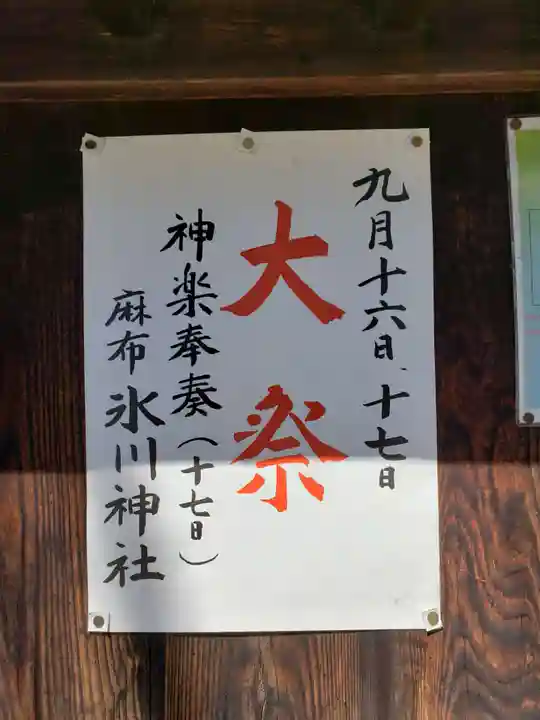 九月十六日、十七日
大祭
神楽奉奏(十七日)
麻布氷川神社